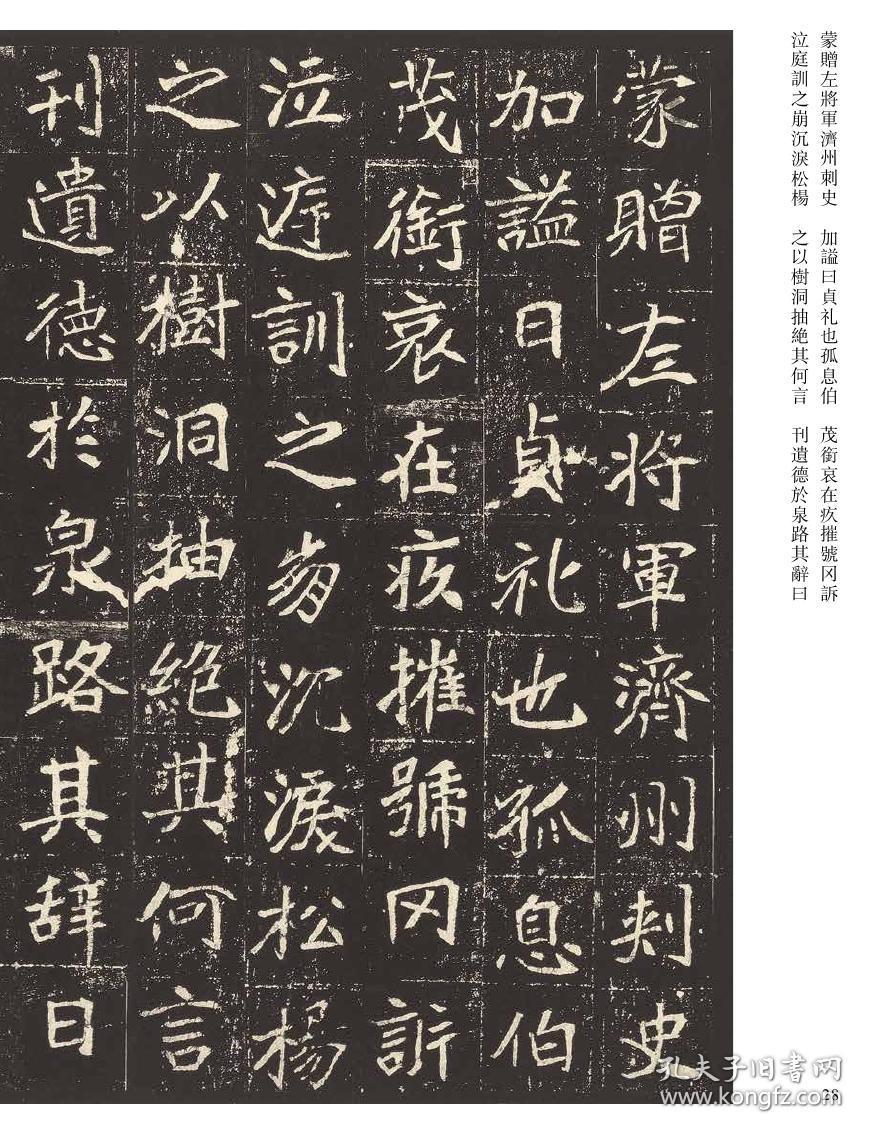 蒙贈左將軍濟州刺史
加謚曰貞礼也孤息伯
茂銜哀在疚摧號冈訴
泣庭訓之崩沉淚松楊
之以樹洞抽絶其何言
刊遺德於泉路其辭曰
蒙贈左將軍濟州刺史 加謚曰貞礼也孤息伯 茂銜哀在疚摧號冈訴
泣庭訓之崩沉淚松楊 之以樹洞抽絶其何言 刊遺德於泉路其辭曰
孔夫子旧书网
www.kongfz.com
28